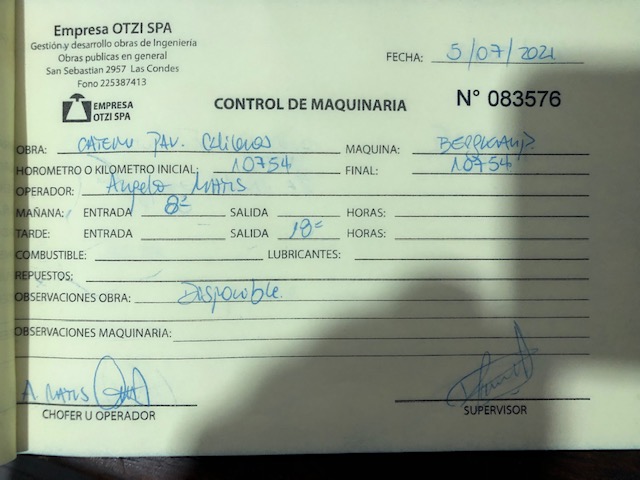 Empresa OTZI SPA
Gestión y desarrollo obras de Ingeniería
Obras publicas en general
San Sebastian 2957 Las Condes
Fono 225387413
FECHA: 5/07/2021
EMPRESA
OTZI SPA
CONTROL DE MAQUINARIA
N° 083576
OBRA: MAQUINA:
HOROMETRO O KILOMETRO INICIAL: 10754 FINAL: 10754
OPERADOR: Angelo
MAÑANA: ENTRADA 8= SALIDA HORAS:
TARDE: ENTRADA SALIDA 18= HORAS:
COMBUSTIBLE: LUBRICANTES:
REPUESTOS:
OBSERVACIONES OBRA: Disponible.
OBSERVACIONES MAQUINARIA:
CHOFER U OPERADOR
SUPERVISOR